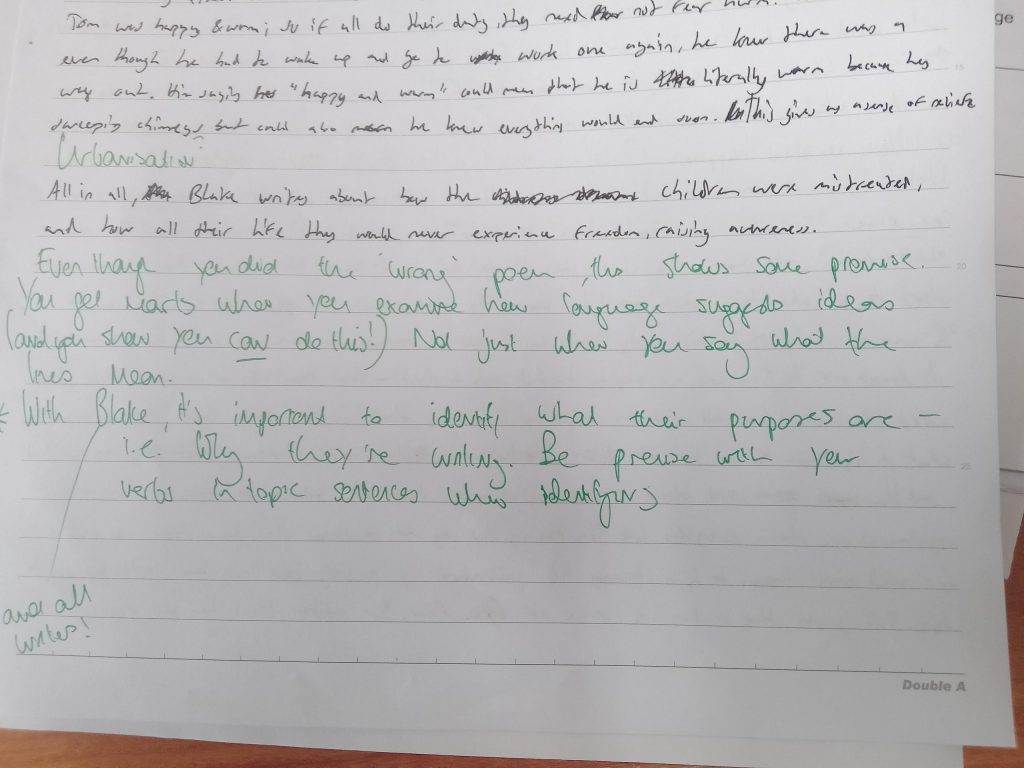 Tom was happy & warm; so if all do their duty, they need not fear harm.
even though he had to wake up and go to work one again, he knew there was a
way out. Him saying "happy and warm" could mean that he is literally warm because he's
sweeping chimneys but could also he knew everything would end soon. This gives us a sense of
Urbanisation
All in all, Blake writes about how the children were mistreated,
and how all their life they would never experience freedom, raising awareness.
Even though you did the 'wrong' poem, this shows some promise.
You get marks when you examine how language suggests ideas
(and you show you can do this!) Not just when you say what the
lines mean.
* With Blake, it's important to identify what their purposes are –
i.e. Why they're writing. Be precise with your
verbs in topic sentences when identifying
and all
writers!
ge
15
20
25
Double A